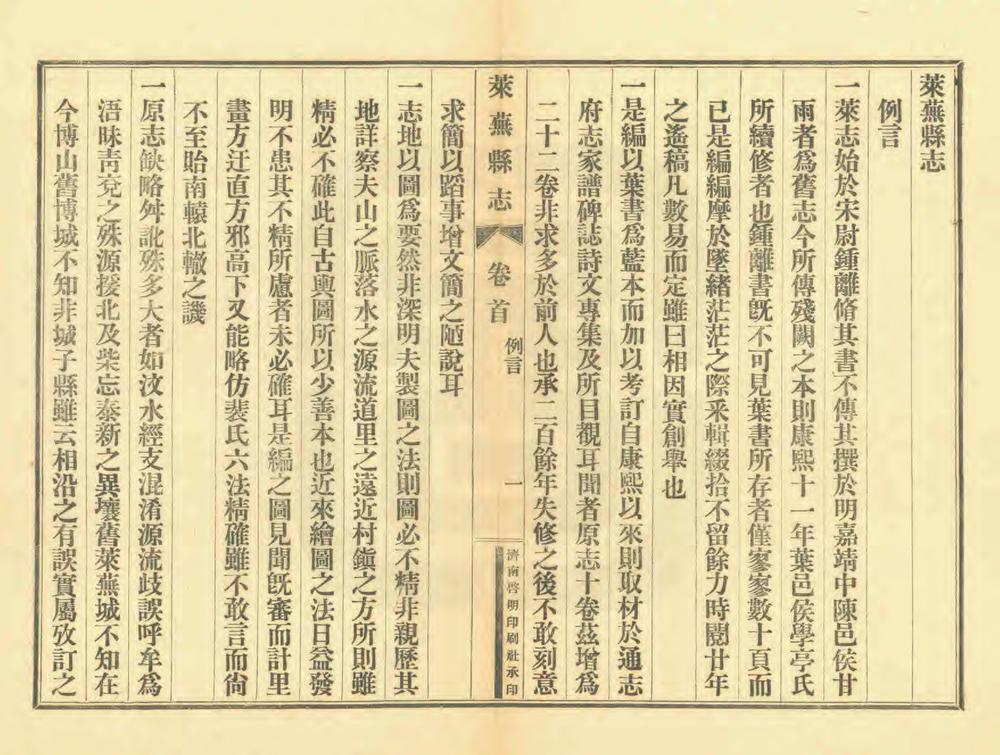 萊蕪縣志
例言
一萊志始於宋尉鍾離脩其書不傳其撰於明嘉靖中陳邑侯甘
雨者為舊志今所傳殘闕之本則康熙十一年葉邑侯學亭氏
所續修者也鍾離書旣不可見葉書所存者僅寥寥數十頁而
已是編編摩於墜緒茫茫之際釆輯綴拾不留餘力時閱廿年
之遙稿凡數易而定雖曰相因實創舉也
一是編以葉書為藍本而加以考訂自康熙以來則取材於通志
府志家譜碑誌詩文專集及所目覩耳聞者原志十卷茲增為
二十二卷非求多於前人也承二百餘年失修之後不敢刻意
萊蕪縣志
卷首
例言
一
濟南啓明印刷社承印
求簡以蹈事增文簡之陋說耳
一志地以圖為要然非深明夫製圖之法則圖必不精非親歷其
地詳察夫山之脈落水之源流道里之遠近村鎭之方所則雖
精必不確此自古輿圖所以少善本也近來繪圖之法日益發
明不患其不精所慮者未必確耳是編之圖見聞旣審而計里
畫方迂直方邪高下又能略仿裴氏六法精確雖不敢言而尙
不至貽南轅北轍之譏
一原志缺略舛訛殊多大者如汶水經支混淆源流歧誤呼牟為
浯昧靑兗之殊源援北及柴忘泰新之異壤舊萊蕪城不知在
今博山舊博城不知非城子縣雖云相沿之有誤實屬攷訂之